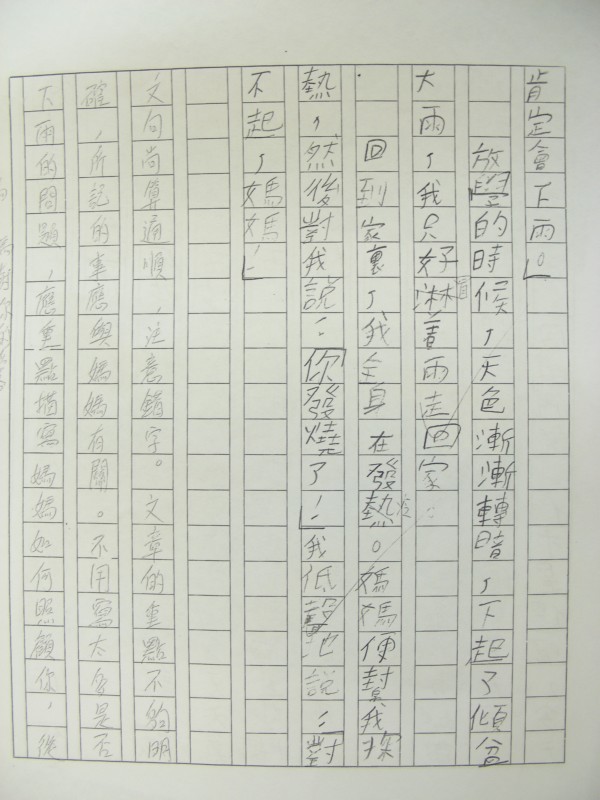 肯定會下雨。」
放學的時候，天色漸漸轉暗，下起了傾盆
大雨，我只好淋着雨走回家：
回到家裏，我全身在發熱。媽媽便幫我探
熱，然後對我說：「你發燒了！」我低聲地說：「對
不起，媽媽！」
文句尚算通順，注意錯字。文章的重點不夠明
確，所記的事應與媽媽有關。不用寫太多是否
下雨的問題，應重點描寫媽媽如何照顧你，後